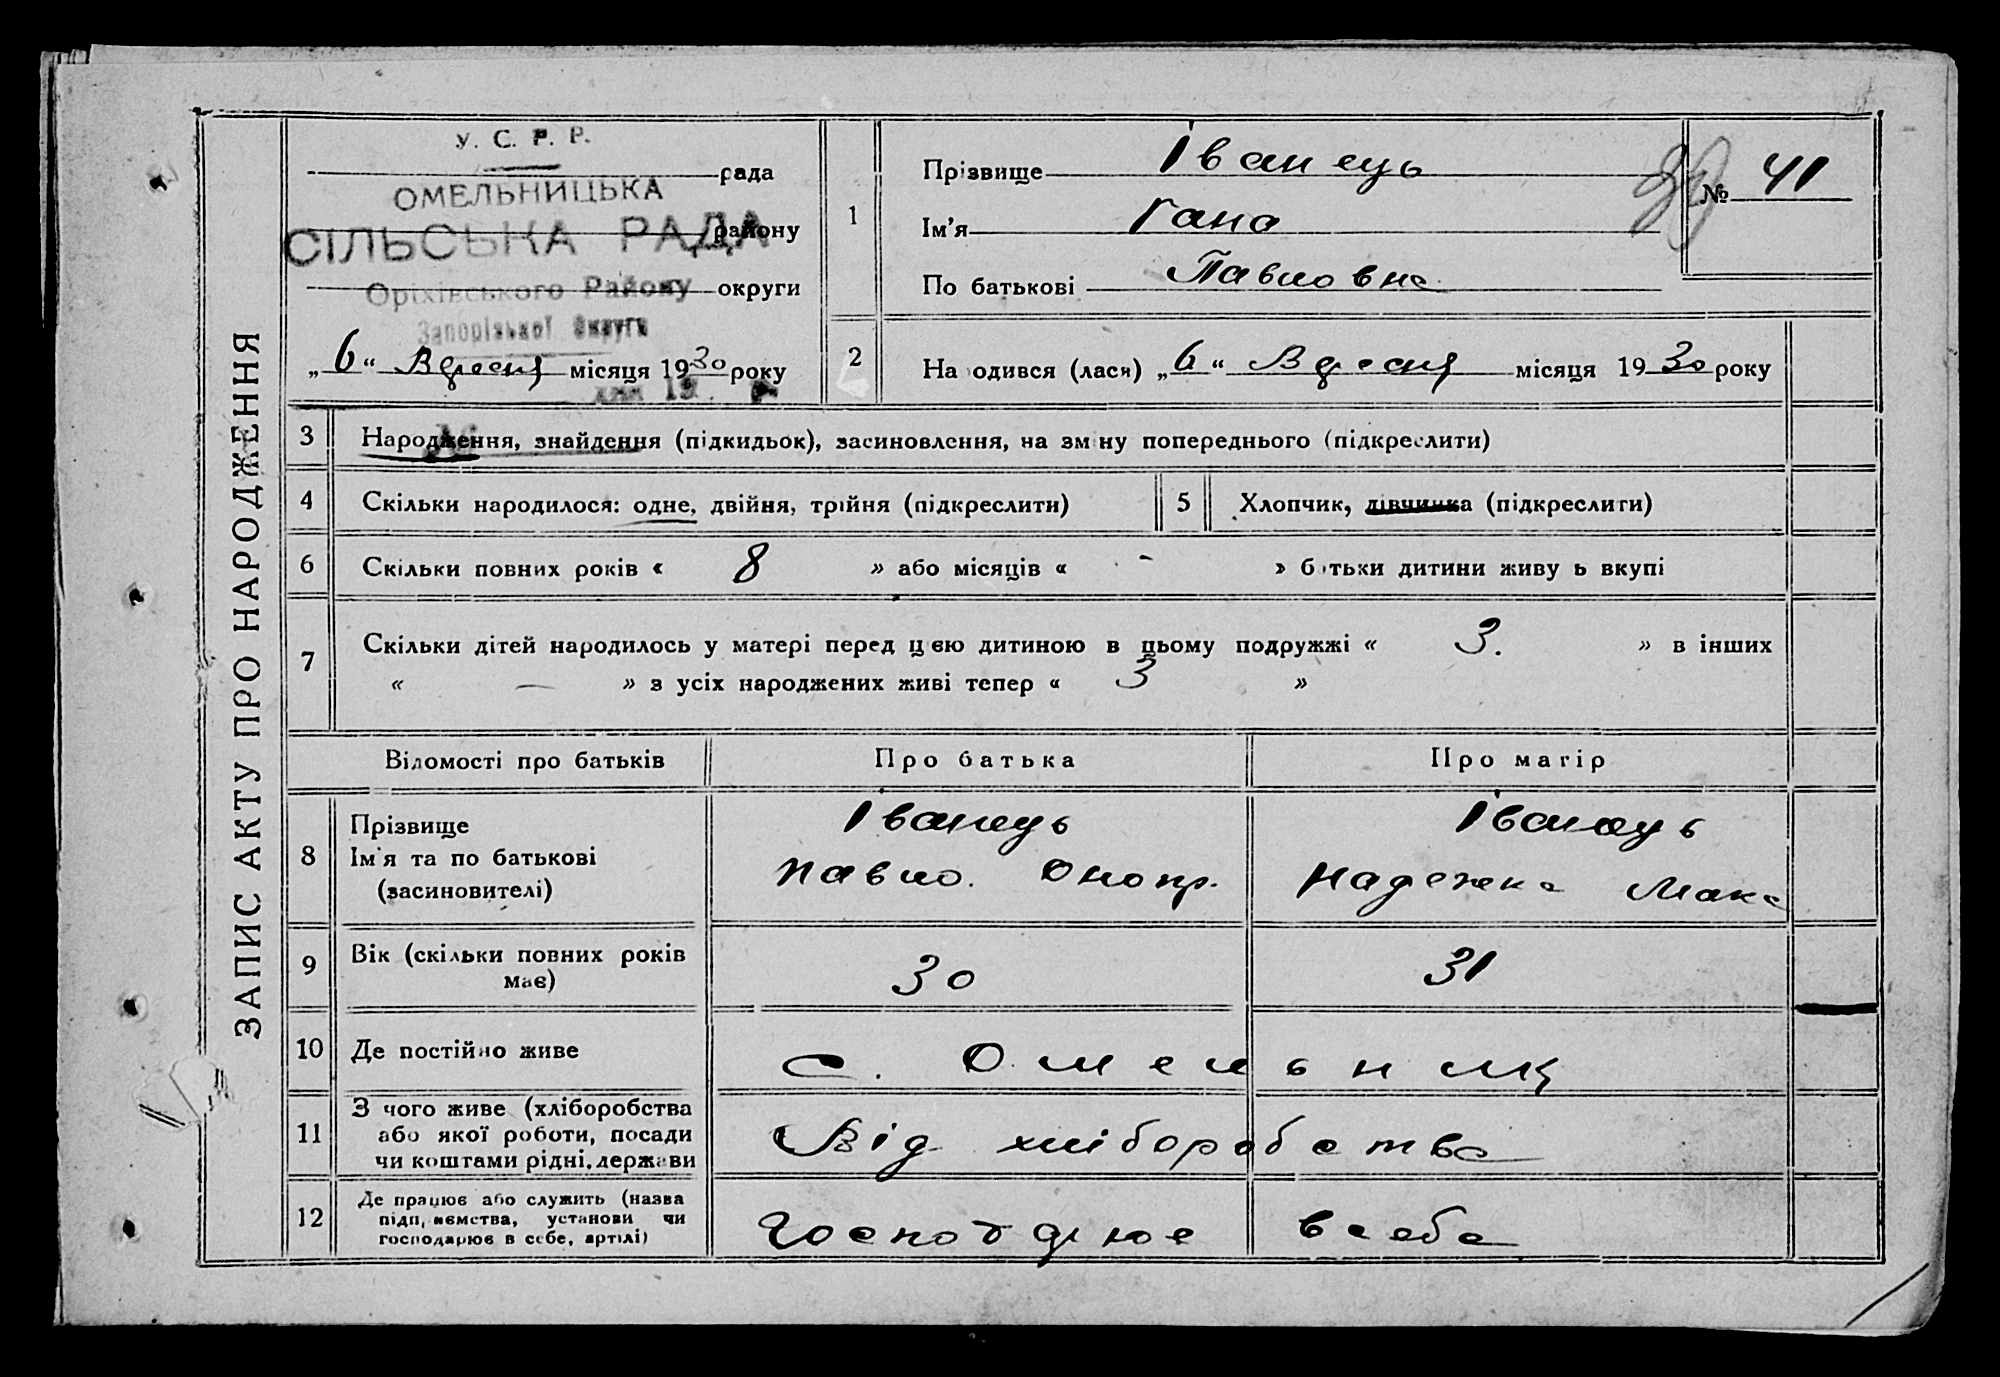 ЗАПИС АКТУ ПРО НАРОДЖЕННЯ
У. С. Р. Р.
рада
ОМЕЛЬНИЦЬКА
району
СІЛЬСЬКА РАДА
округи
Оріхівського Району
Запорізької Округи
„6“ Вересня місяця 1930 року
1
Прізвище Іванець
Ім'я Гана
По батькові Павловна
№ 41
2
Народився (лася) „6“ Вересня місяця 1930 року
3 Народження, знайдення (підкидьок), засиновлення, на зміну попереднього (підкреслити)
4 Скільки народилося: одне, двійня, трійня (підкреслити)
5 Хлопчик, дівчинка (підкреслити)
6 Скільки повних років « 8 » або місяців « - » батьки дитини живуть вкупі
7 Скільки дітей народилось у матері перед цією дитиною в цьому подружжі « 3. » в інших
« — » з усіх народжених живі тепер « 3 »
Відомості про батьків
Про батька
Про матір
8 Прізвище
Ім'я та по батькові
(засиновителі)
Іванець
Павло. Оnопр.
Іванець
Надежка Мака
9 Вік (скільки повних років
має)
30
31
10 Де постійно живе
с. Омельник
11 З чого живе (хліборобства
або якої роботи, посади
чи коштами рідні, держави
Від хліборобства
12 Де працює або служить (назва
підприємства, установи чи
господарює в себе, артілі)
Господрює всебе